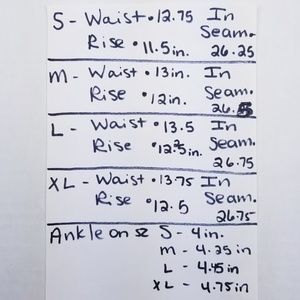 S - Waist • 12.75 In
Rise • 11.5 in. Seam.
26.25
M - Waist • 13 in. In
Rise • 12 in. Seam.
26.5
L - Waist • 13.5 In
Rise • 12.25 in. Seam.
26.75
XL - Waist • 13.75 In
Rise • 12.5 Seam.
26.75
Ankle on S - 4 in.
M - 4.25 in
L - 4.45 in
XL - 4.75 in